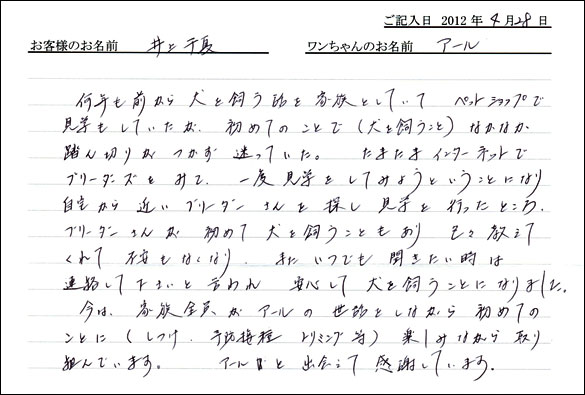 ご記入日 2012 年 4 月 28 日
お客様のお名前 井上 千夏 ワンちゃんのお名前 アール
何年も前から 犬を飼う話を家族としていて ペットショップで
見学もしていたが、初めてのことで(犬を飼うこと)なかなか
踏ん切りが つかず 迷っていた。 たまたま インターネットで
ブリーダーズを みて、一度見学を してみようということになり
自宅から 近い ブリーダー さんを 探し 見学を 行ったところ、
ブリーダー さんが 初めて 犬を飼うこともあり 色々 教えて
くれて 不安も なくなり、また いつでも 聞きたい時は
連絡して下さいと 言われ 安心して 犬を飼うことになりました。
今は、家族全員が アールの 世話をしながら 初めての
ことに(しつけ、予防接種 トリミング等)楽しみながら 取り
組んでいます。 アールと 出会えて 感謝しています。